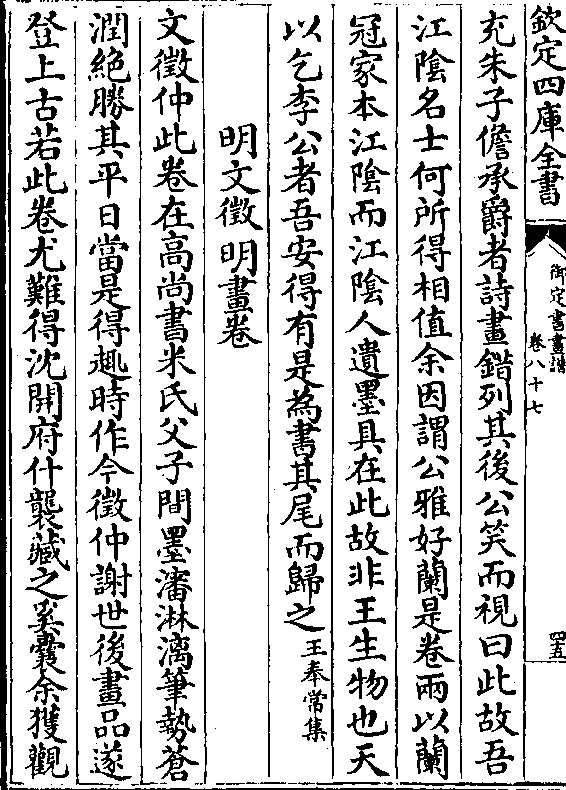 欽定四庫全書
御定書畫譜
卷八十七
四五
充朱子儋承爵者詩畫錯列其後公笑而視曰此故吾
江陰名士何所得相值余因謂公雅好蘭是卷兩以蘭
冠家本江陰而江陰人遺墨具在此故非王生物也天
以乞李公者吾安得有是為書其尾而歸之王奉常集
明文徵明畫卷
文徵仲此卷在高尚書米氏父子間墨瀋淋漓筆勢蒼
潤絕勝其平日當是得趣時作今徵仲謝世後畫品遂
登上古若此卷尤難得沈開府什襲藏之奚囊余獲觀